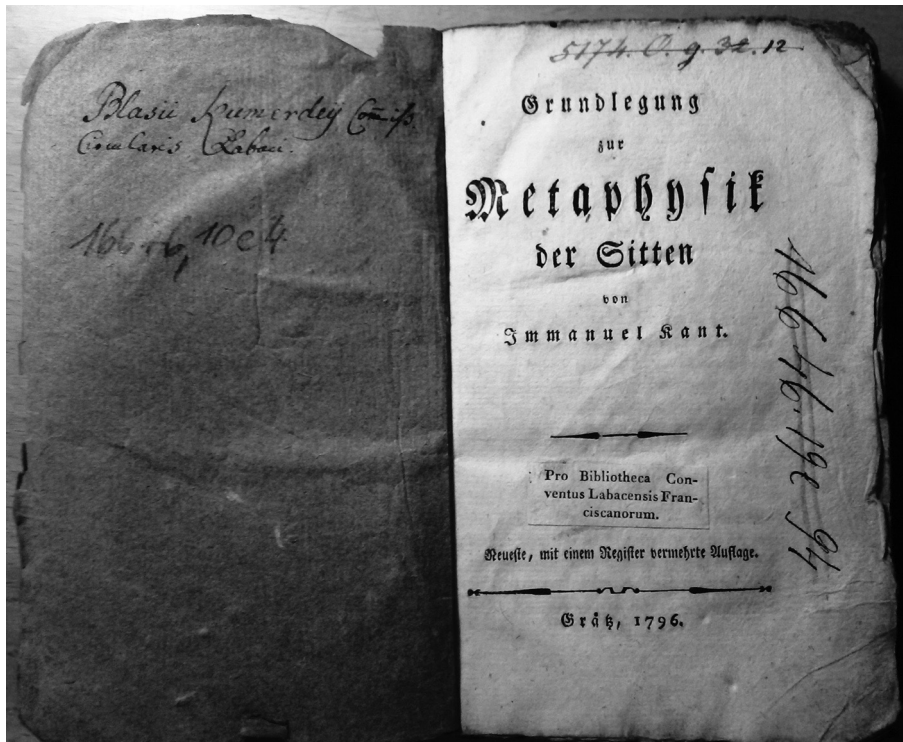 Blasii Kumerdey Com̄iſs.
Circularis Labaci.
5174. O. g. 32. 12
Grundlegung
zur
Metaphyſik
der Sitten
von
Immanuel Kant.
Pro Bibliotheca Con-
ventus Labacensis Fran-
ciscanorum.
Neueſte, mit einem Regiſter vermehrte Auflage.
Grätz, 1796.